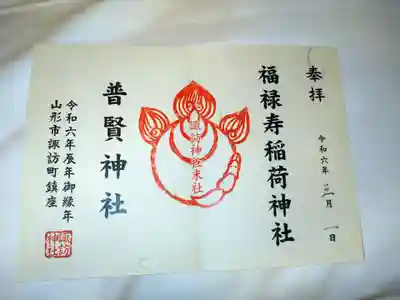 奉拝
令和六年三月一日
福禄寿稲荷神社
諏訪神社末社
普賢神社
令和六年辰年御縁年
山形市諏訪町鎮座
諏訪神社